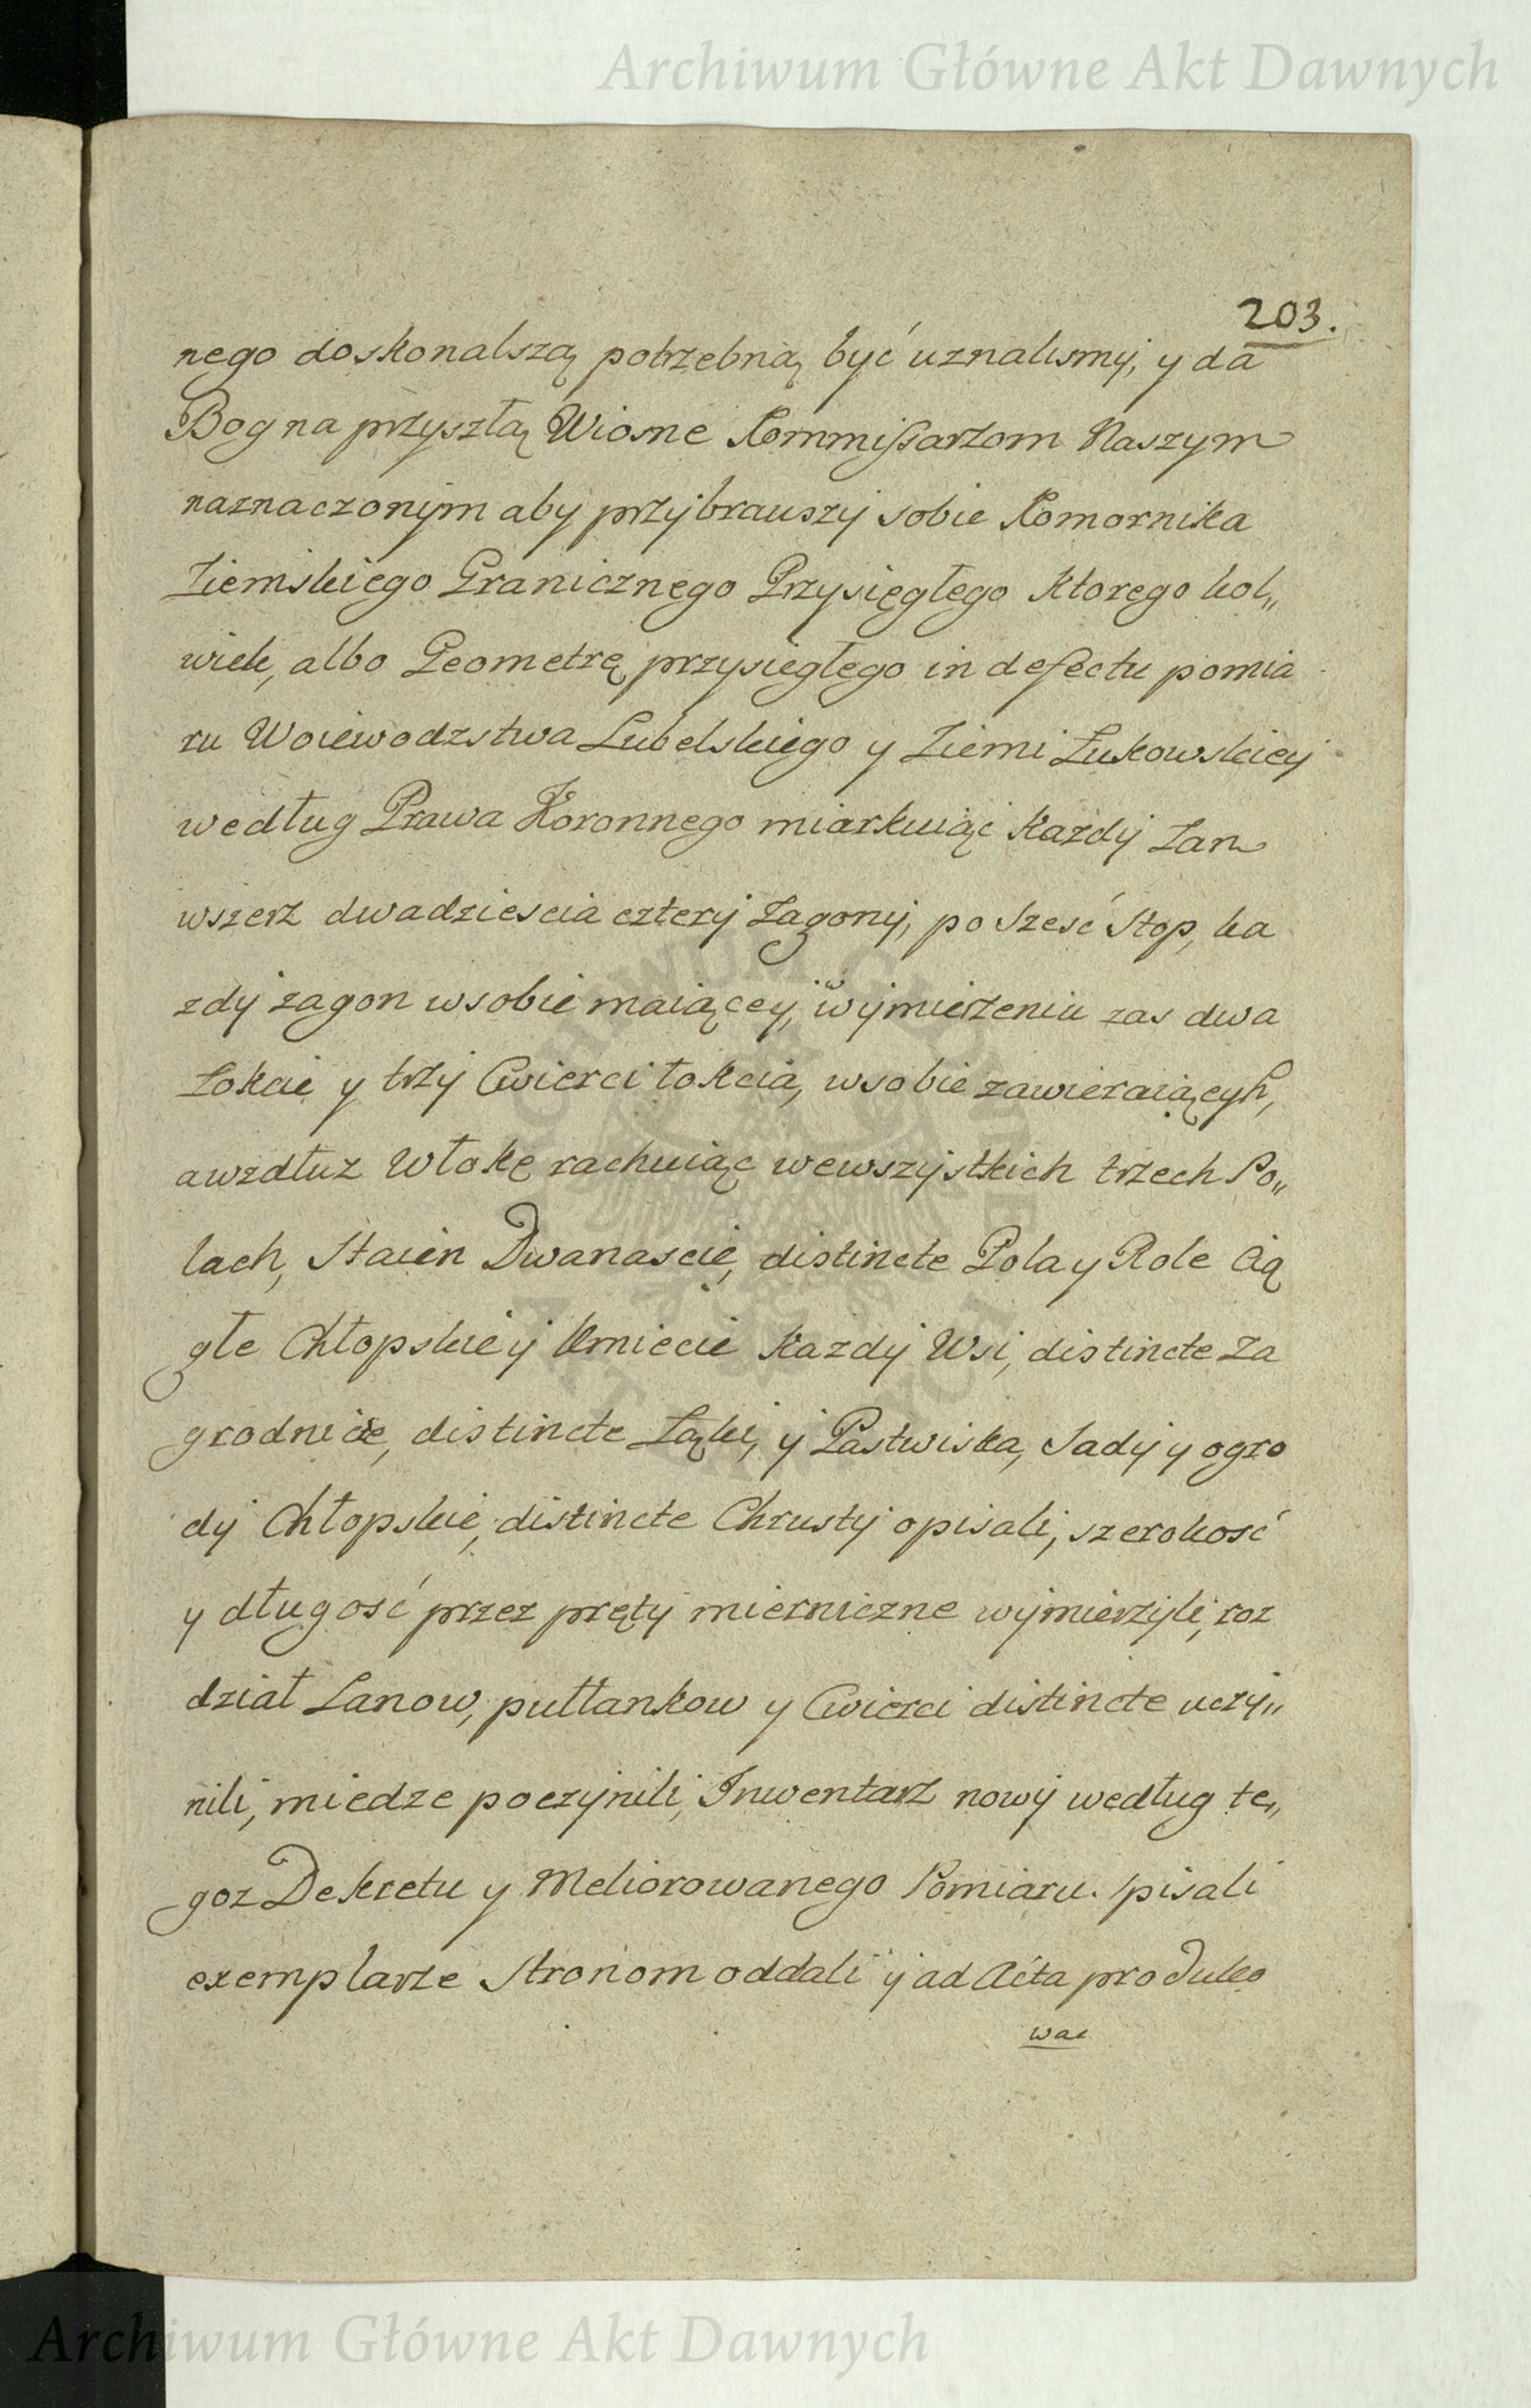 Archiwum Główne Akt Dawnych
203.
nego doskonalszą potrzebną być uznalismy, y da
Bog na przyszłą Wiosne Kommissarzom Naszym
naznaczonym aby przybrauszy sobie Komornika
Ziemskiego Granicznego Przysięgłego Ktorego kol„
wiek, albo Geometrę przysięgłego in defectu pomia
ru Woiewodzstwa Lubelskiego y Ziemi Łukowskiey
według Prawa Koronnego miarkuiąc Kazdy Łan
wszerz dwadziescia cztery Zagony, po Szesć Stop, ka
zdy zagon w sobie maiącey, w wymierzeniu zas dwa
Łokcie y trzy Cwierci łokcia, wsobie zawieraiącyh,
awzdłuz Włokę rachuiąc wewszystkich trzech Po„
lach, Staien Dwanascie, distincte Pola y Role Cią
głe Chłopskie y Kmiecie Kazdy Wsi, distincte Za
grodnicze, distincte Łąki, y Pastwiska, Sady y ogro
dy Chłopskie, distincte Chrusty opisali, szerokość
y długość przez pręty miernicze wymierzyli, roz
dział Łanow, pułłankow y Cwierci distincte uczy„
nili, miedze poczynili, Inwentarz nowy według te„
goz Dekretu y Meliorowanego Pomiaru. spisali
exemplarze Stronom oddali y ad Acta produko
wac
Archiwum Główne Akt Dawnych